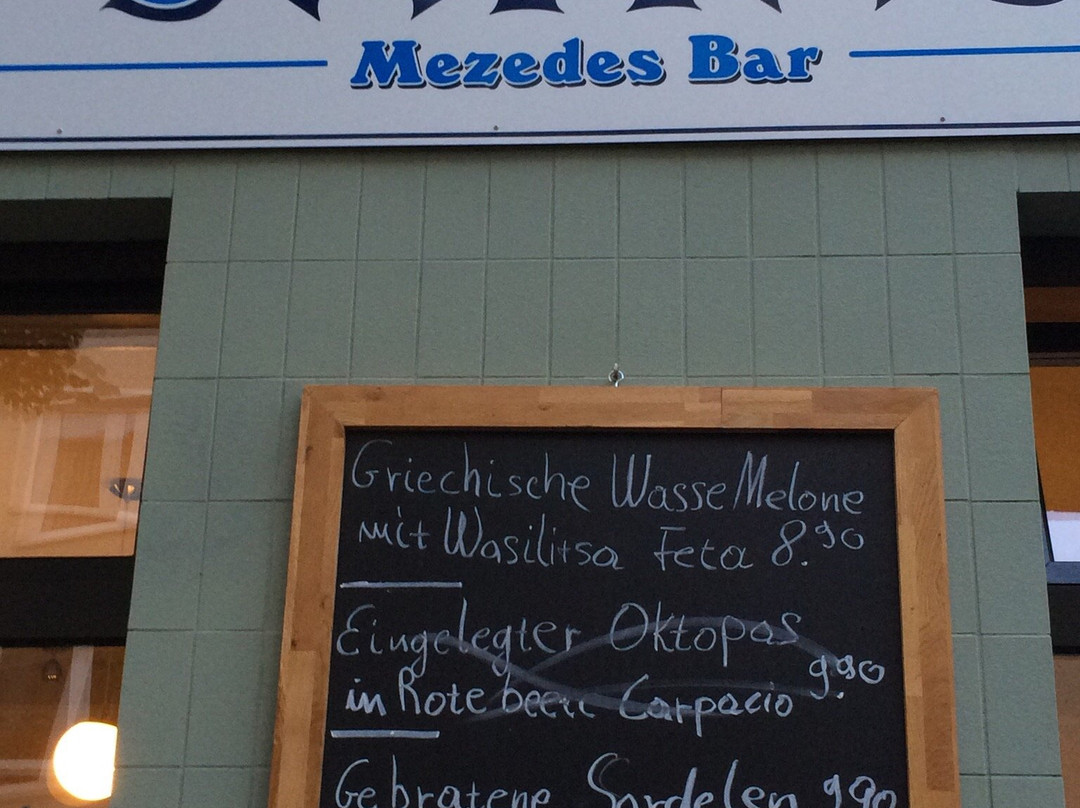 Mezedes Bar
Griechische WasseMelone
mit Wasilitsa Feta 8.90
Eingelegter Oktopas
9.90
in Rote beete Carpacio
Gebratene Sardelen 9.90